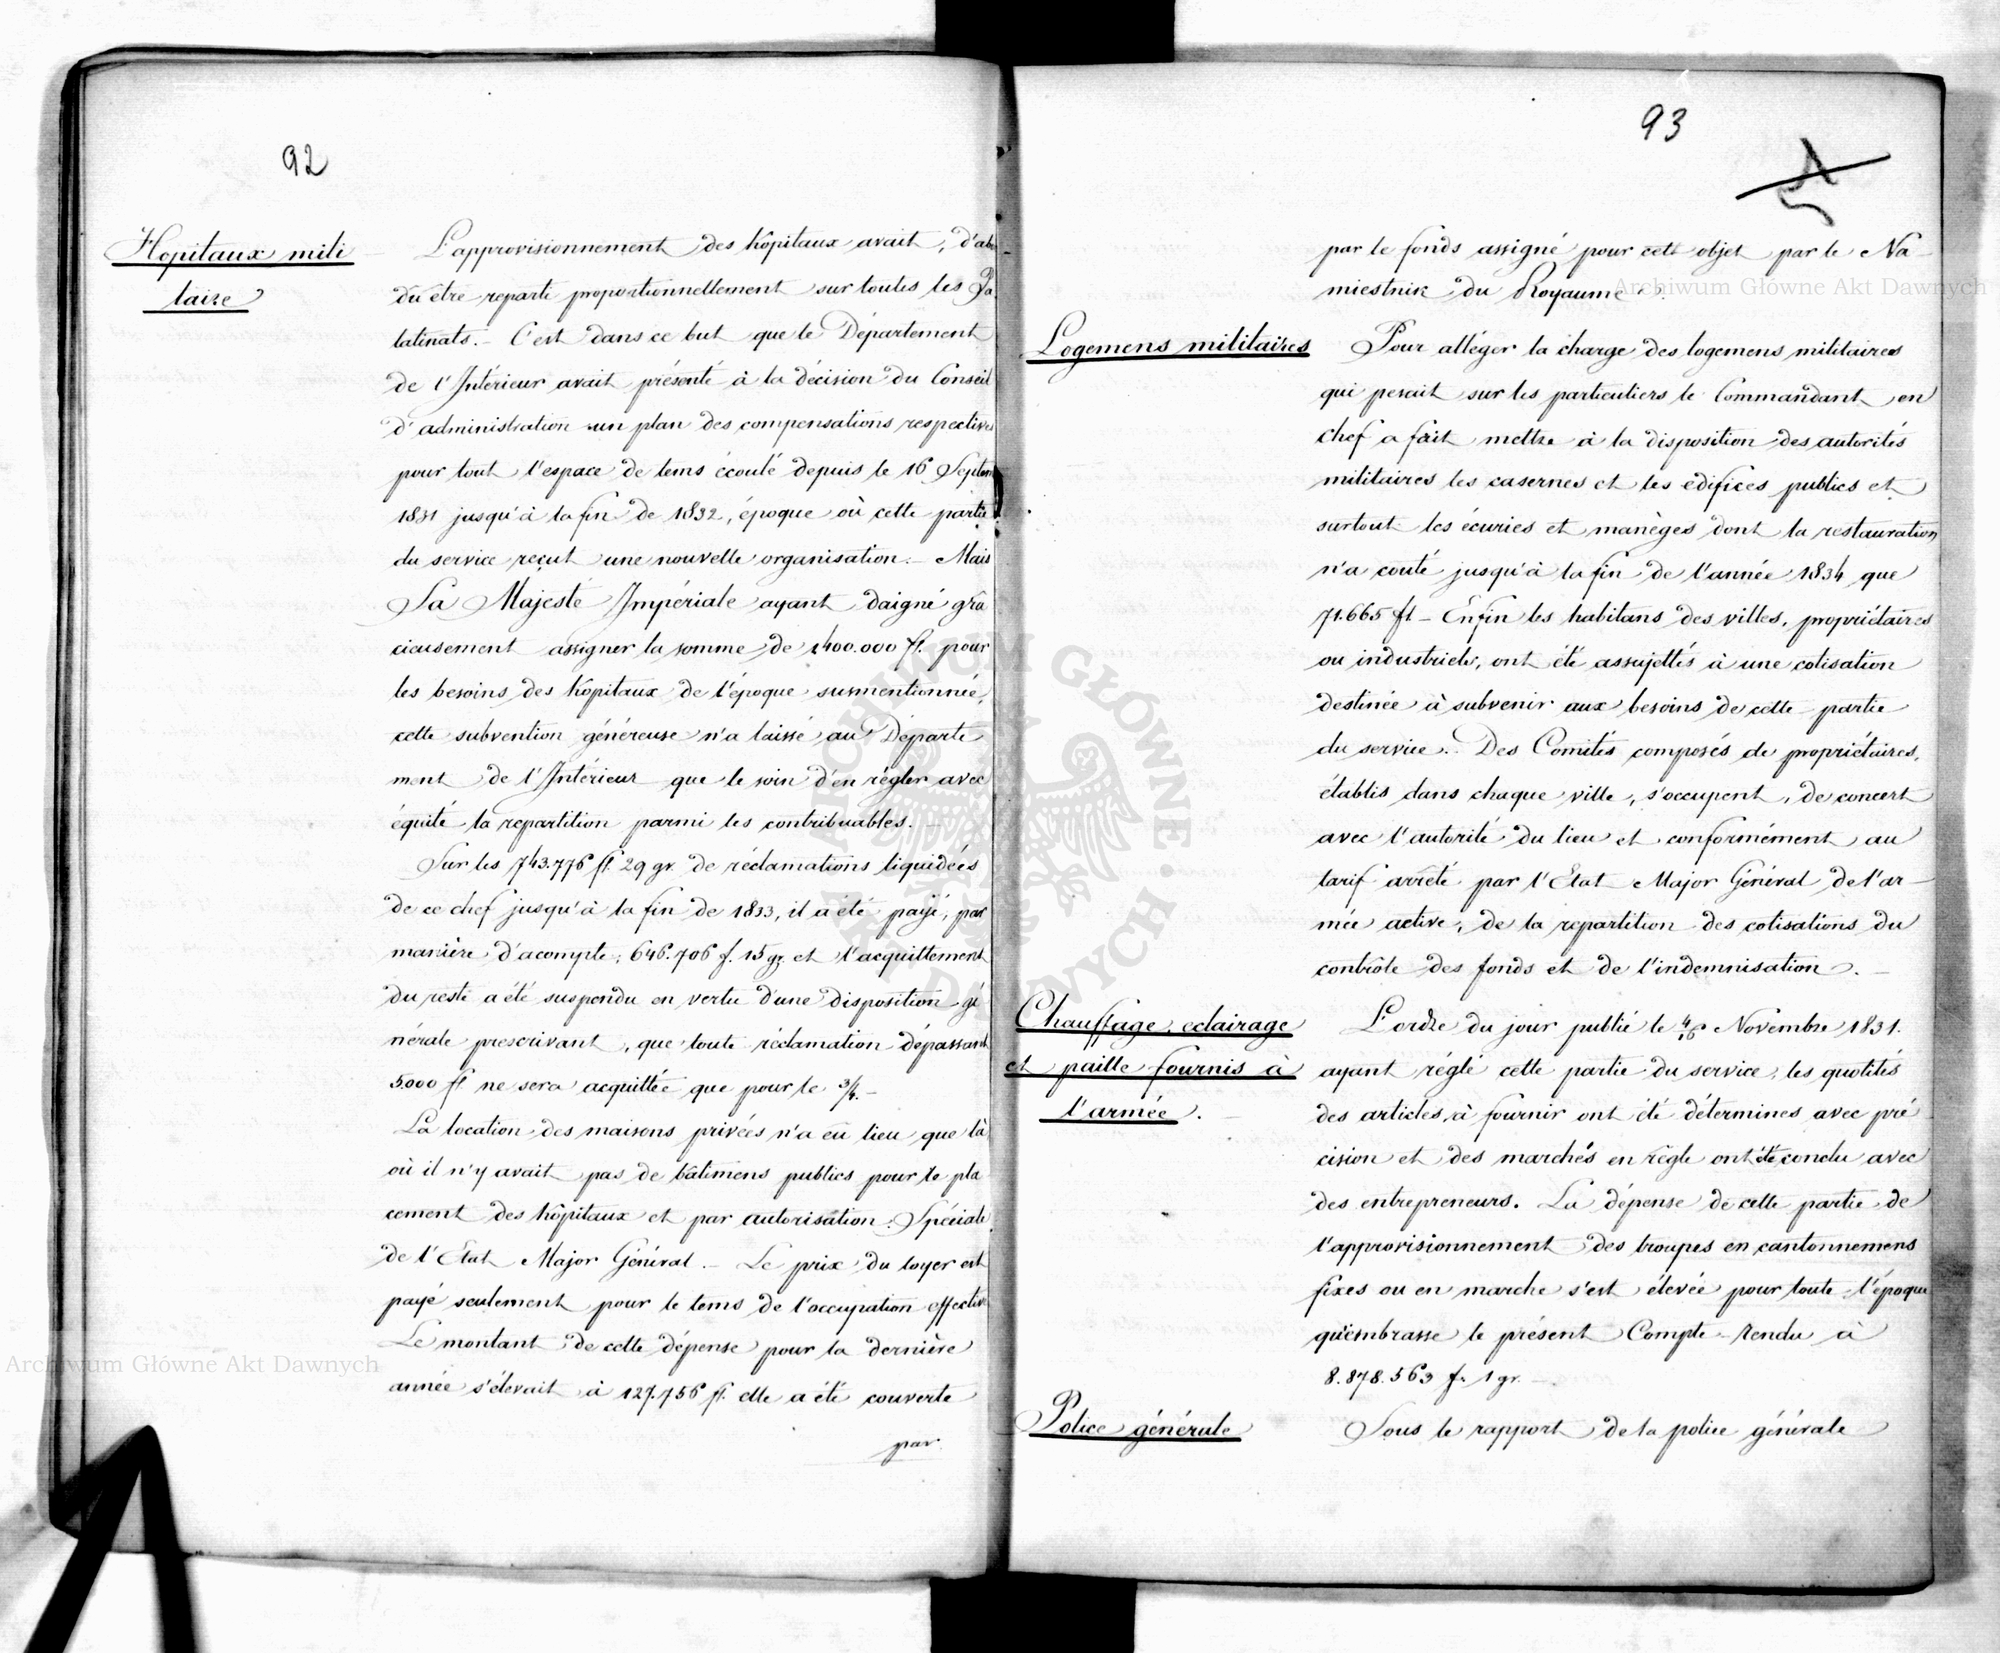 92
Hopitaux mili
taire
L'approvisionnement des hôpitaux avait, d'abo
du être reparti proportionnellement sur toutes les Pa
latinats. – C'est dans ce but que le Département
de l'Intérieur avait présenté à la décision du Conseil
d'administration un plan des compensations respectives
pour tout l'espace de tems écoulé depuis le 16 Septem
1831 jusqu'à la fin de 1832, époque où cette partie
du service reçut une nouvelle organisation. – Mais
Sa Majesté Impériale ayant daigné gra
cieusement assigner la somme de 1400.000 fl. pour
les besoins des hôpitaux de l'époque susmentionnée,
cette subvention généreuse n'a laissé au Départe
ment de l'Intérieur que le soin d'en régler avec
équité la repartition parmi les contribuables. –
Sur les 743.776 fl. 29 gr. de réclamations liquidées
de ce chef jusqu'à la fin de 1833, il a été payé, par
manière d'acompte, 646.706 f. 15 gr. et l'acquittement
du reste a été suspendu en vertu d'une disposition gé
nérale prescrivant, que toute réclamation dépassant
5.000 fl. ne sera acquittée que pour le 3/4. –
La location des maisons privées n'a eu lieu que là
où il n'y avait pas de bâtimens publics pour le pla
cement des hôpitaux et par autorisation Spéciale
de l'Etat Major Général. – Le prix du loyer est
payé seulement pour le tems de l'occupation effective
Le montant de cette dépense pour la dernière
année s'élevait à 127.756 fl. elle a été couverte
par
93
par le fonds assigné pour cett objet par le Na
miestnik du Royaume.
Logemens militaires
Pour alléger la charge des logemens militaires
qui pesait sur les particuliers le Commandant en
chef a fait mettre à la disposition des autorités
militaires les casernes et les édifices publics et
surtout les écuries et manèges dont la restauration
n'a couté jusqu'à la fin de l'année 1834 que
71.665 fl. – Enfin les habitans des villes, propriétaires
ou industriels, ont été assujettis à une cotisation
destinée à subvenir aux besoins de cette partie
du service. Des Comités composés de propriétaires,
établis dans chaque ville, s'occupent, de concert
avec l'autorité du lieu et conformément au
tarif arrêté par l'Etat Major Général de l'ar –
mée active, de la repartition des cotisations du
contrôle des fonds et de l'indemnisation. –
Chauffage, eclairage
et paille fournis à
l'armée.
L'ordre du jour publié le 4/16 Novembre 1831.
ayant réglé cette partie du service, les quotités
des articles à fournir ont été détermines avec pré
cision et des marchés en règle ont été conclu avec
des entrepreneurs. La dépense de cette partie de
l'approvisionnement des troupes en cantonnemens
fixes ou en marche s'est élevée pour toute l'époque
qu'embrasse le présent Compte-rendu à
8.878.563 f. 1 gr. –
Police générale
Sous le rapport de la police générale
Archiwum Główne Akt Dawnych
Archiwum Główne Akt Dawnych
ARCHIWUM GŁÓWNE · AKT DAWNYCH ·